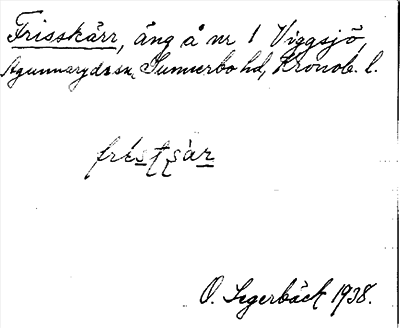 Frisskärr, äng å nr 1 Viggsjö,
Agunnaryds sn, Sunnerbo hd, Kronob. l.
O. Segerbäck 1938.